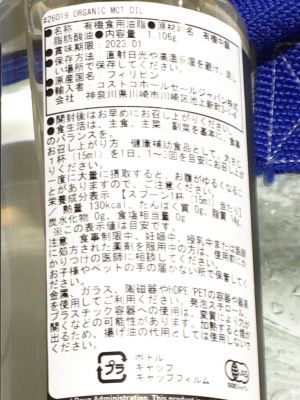 #26019 ORGANIC MCT OIL
●名称 有機食用油脂 ●原材料名:有機中鎖
脂肪酸油 ●内容量 1,106g
●賞味期限 2023.01
●保存方法 直射日光や高温多湿を避け、涼し
い場所で保存してください。
●原産国名:フィリピン
●輸入者 コストコホールセールジャパン株
神奈川県川崎市川崎区池上新町
●開封後はお早めにお召し上がりください。
●食生活は、主食、主菜、副菜を基本に、食事
のバランスを。
お召し上がり方 健康補助食品として、大さじ
1杯(15ml)を1日、1~3回を目安にお召し上が
りください。
一度に大量に摂取すると、お腹がゆるくなるこ
とがありますので、ご注意ください。
栄養成分表示【スプーン1杯(15ml)当たり】
熱量 130kcal、たんぱく質 0g、脂質 14g、
炭水化物 0g、食塩相当量 0g
※この表示値は目安です
注意 食事制限中、妊娠中、授乳中または医師
に処方された薬剤を服用中の方は、使用前にか
かりつけの医師に相談してください。
お子様やペットの手の届かない所で保管してく
ださい。
金属、ガラス、陶磁器やHDPE、PETの容器や器具
を使用してご利用ください。発泡スチロール、
プラスチック容器への使用は、変質したり穴が
開くなどの可能性があります。加熱すると煙が
出るため、揚げ油の代用としては使用しないで
ください。
プラ
ボトル
キャップ
キャップフィルム
JAS
Drug Administration. This product is